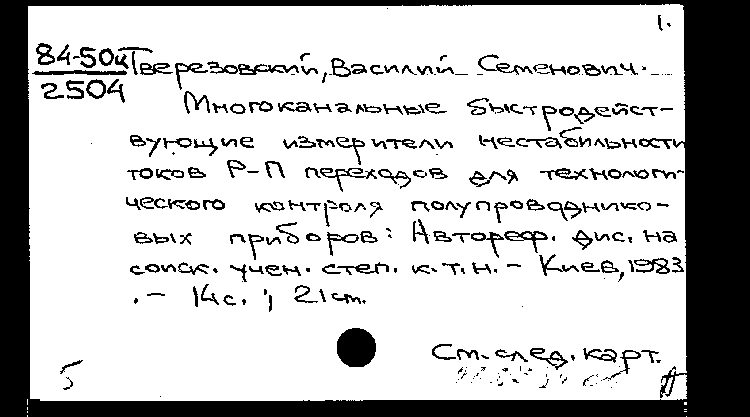 1.
84-50и Тверезовский, Василий Семенович.
2504
Многоканальные быстродейст-
вующие измерители нестабильности
токов Р-П переходов для технологи-
ческого контроля полупроводнико-
вых приборов: Автореф. дис. на
соиск. учен. степ. к.т.н. - Киев, 1983
. - 14с. ; 21см.
См. след. карт.
5